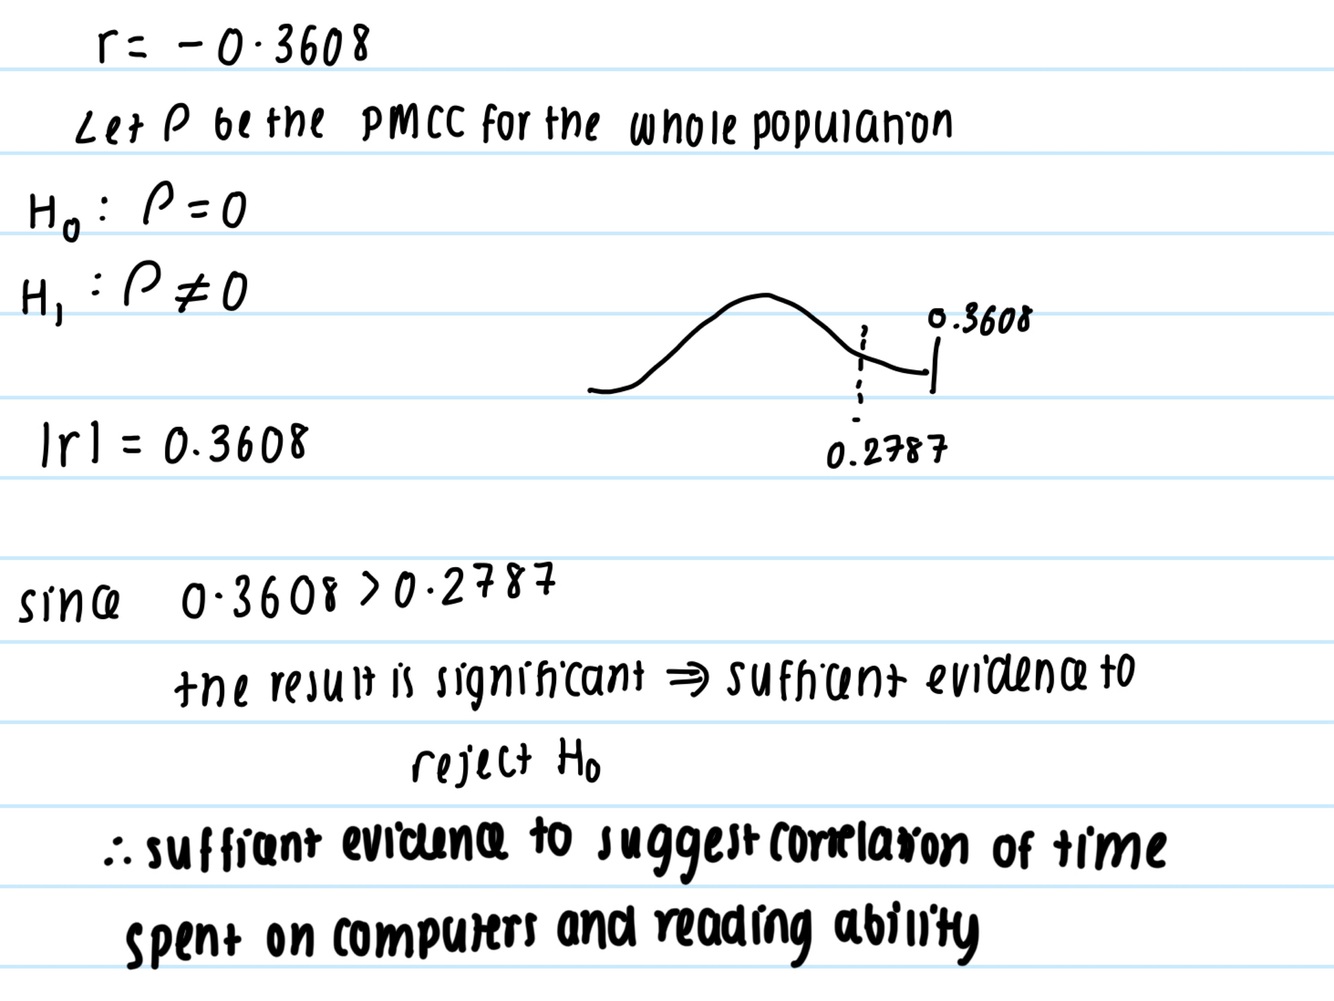 r = -0.3608
Let ρ be the PMCC for the whole population
H₀ : ρ = 0
H₁ : ρ ≠ 0
0.3608
|r| = 0.3608
0.2787
since 0.3608 > 0.2787
the result is significant ⇒ sufficient evidence to
reject H₀
∴ sufficient evidence to suggest correlation of time
spent on computers and reading ability